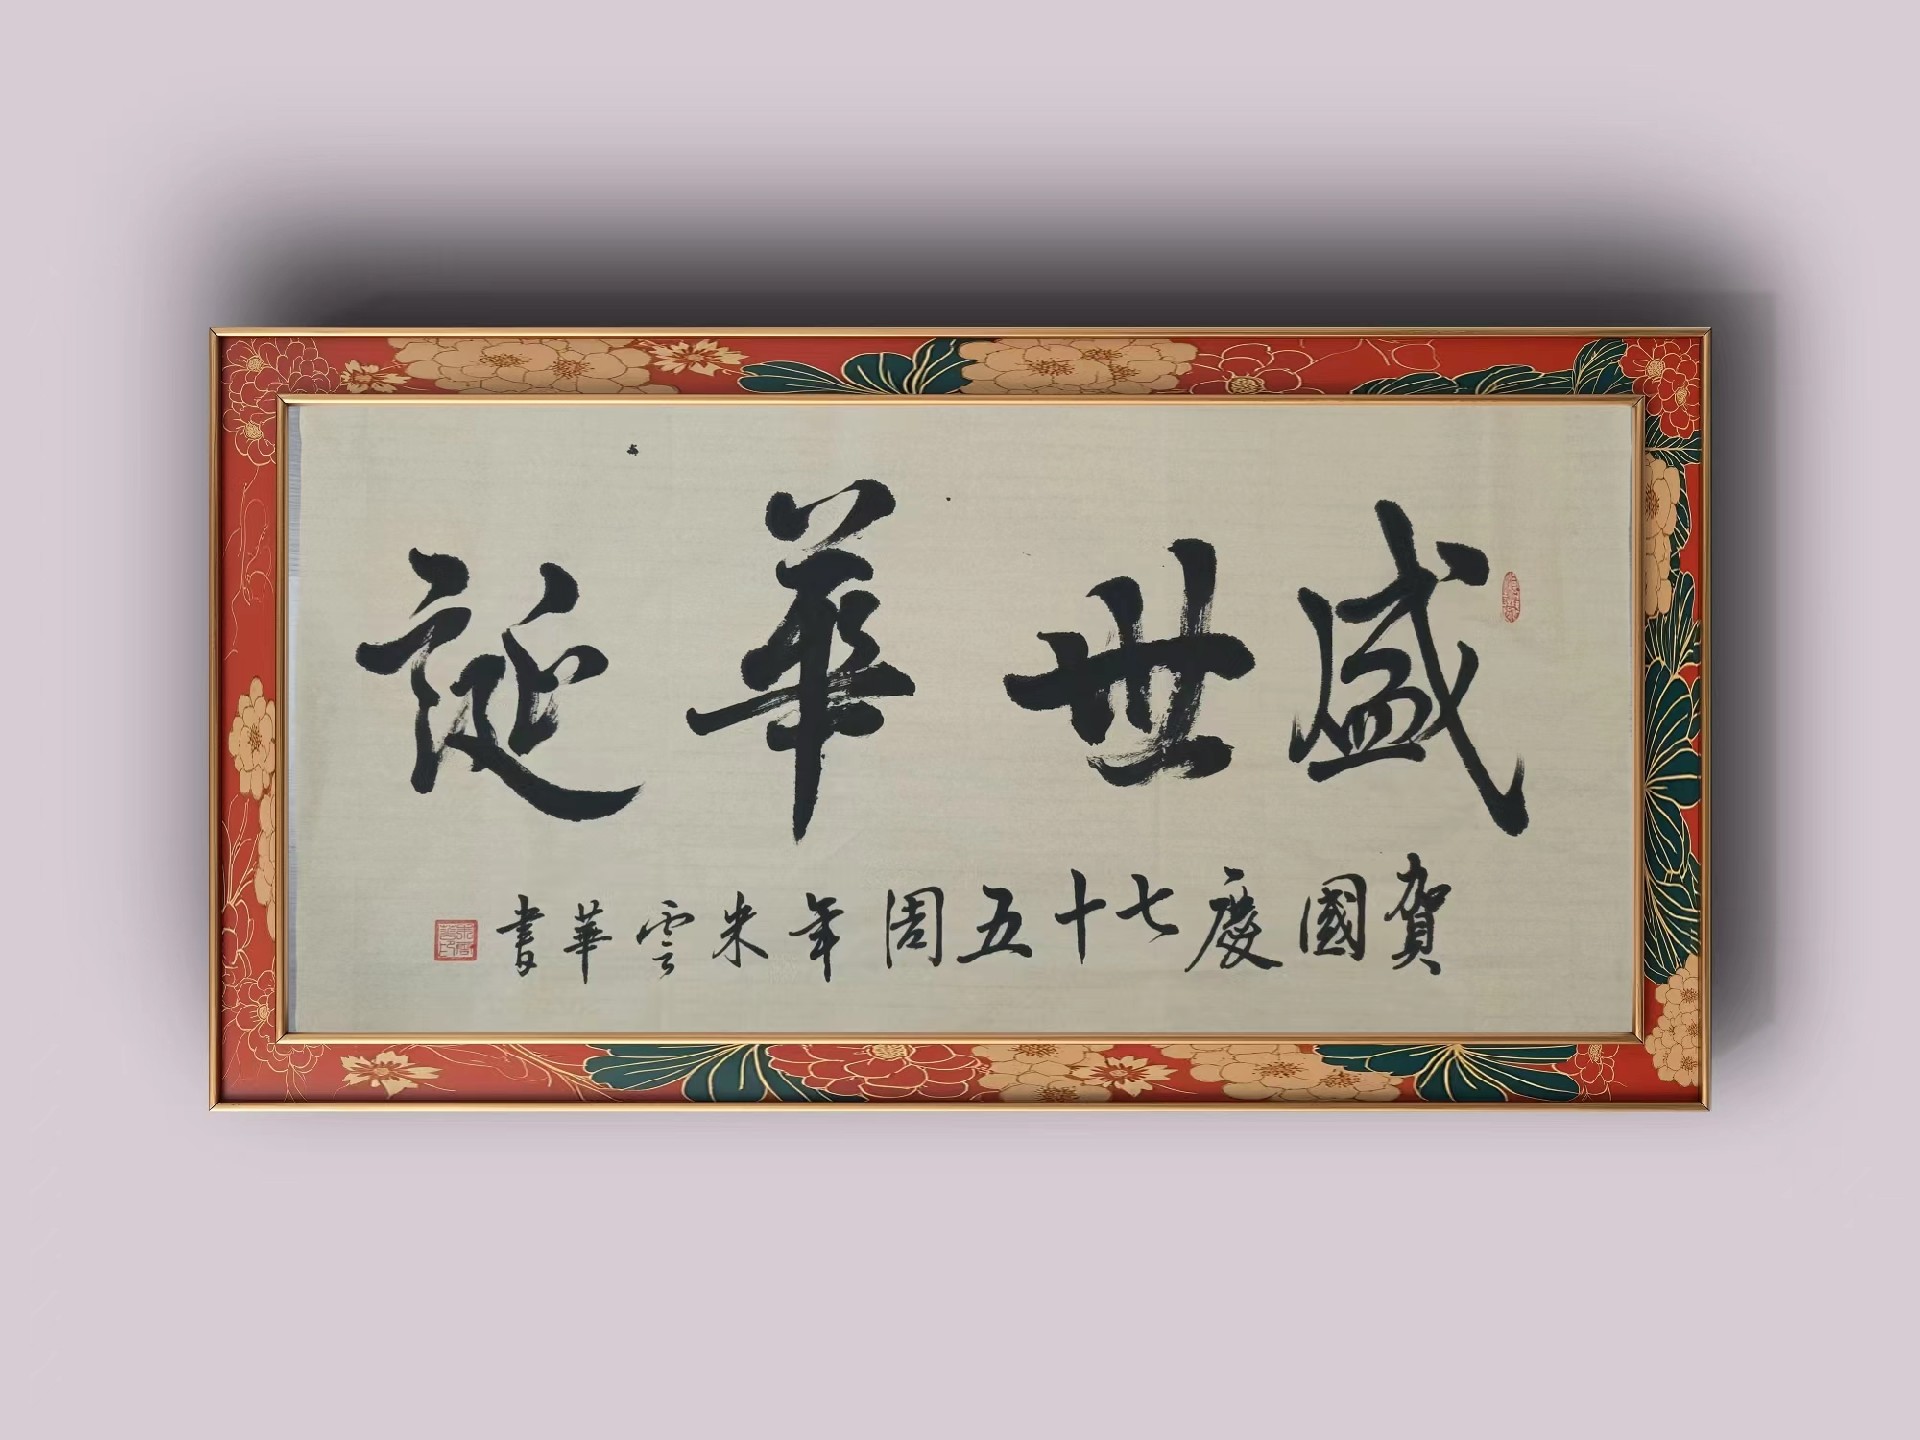 盛世華誕
賀國慶七十五周年朱雲華書